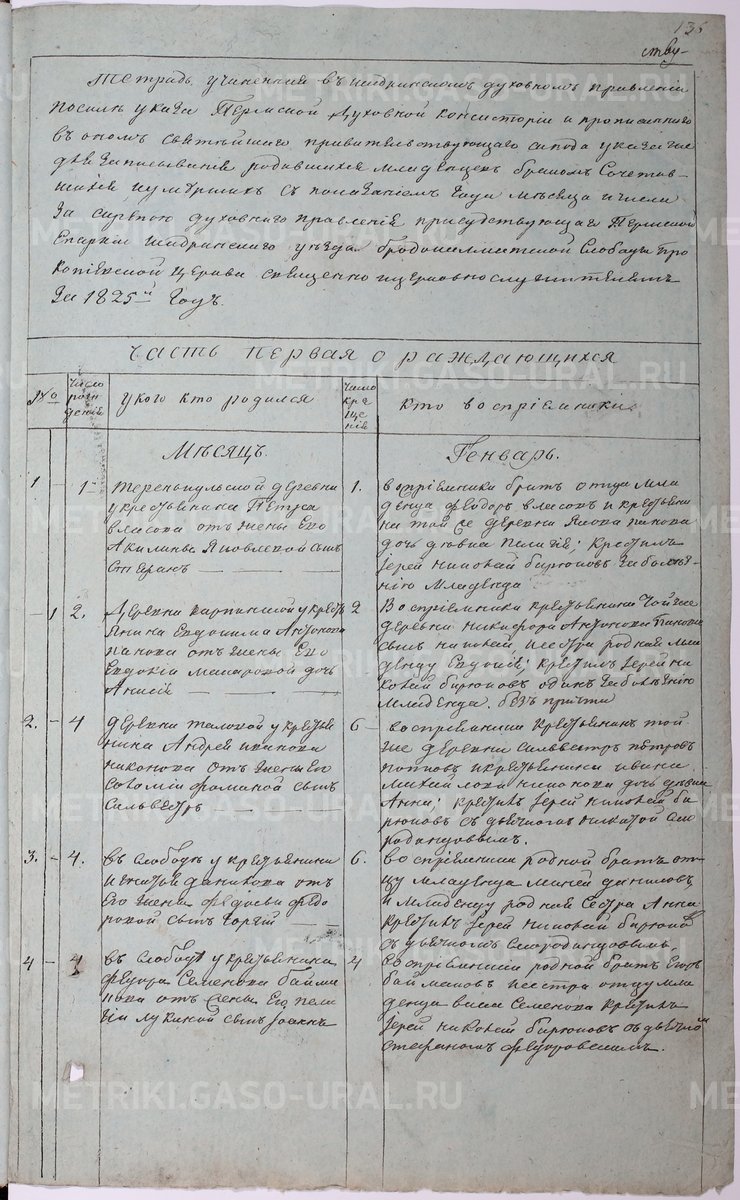 135
ству-
Тетрадь учиненная въ шадринскомъ духовномъ правленіи
посилѣ указа Пермской Духовной Консисторіи и прописаннаго
въ ономъ святѣйшаго правительствующаго синода указа на
для записыванія родившихся младенцевъ бракомъ Сочетав-
шихся и умершихъ съ показаніемъ Года мѣсяца и числа
За скрѣпою духовнаго правленія присудствующаго Пермской
Епархіи Шадринскаго уезда бродокалматской Слободы Про
копіевской церкви священно и церковно служителямъ
За 1825й Годъ.
Часть первая о раждающихся
№
Число рожденій
у кого кто родился
Число крещеній
кто воспріемники
Мѣсяцъ
Генварь.
1 - 1
теренкульской деревни
у крестьянина Петра
власова отъ жены Его
Акилины Яковлевой сынъ
Стефанъ
1.
воспріемники братъ отца мла
денца федоръ власовъ и крестьяни
на той же деревни Якова панова
дочь девка пелагія; крестилъ
іерей николай бирюковъ за болѣз
нію младенца
- 1 2.
Деревни карпинской у кресть
янина Евдокима Антонова
панова отъ жены Его
Евдокіи макаровой дочь
Анисія
2
Воспріемники крестьянина той же
деревни никифора Антонова Панова
сынъ николай и сестра родная мла
денцу Евдокія; крестилъ іерей ни
колай бирюковъ одинъ за болѣзнію
младенца, безъ причта
2. - 4
деревни таловой у кресть
янина Андрея иванова
никонова отъ жены Его
соломіи фоминой сынъ
Сильвестръ
6
воспріемники крестьянинъ той
же деревни сильвестръ петровъ
поповъ и крестьянина ивана
михайлова никонова дочь девка
Анна; крестилъ іерей николай би
рюковъ съ дьячкомъ никитой смо
родинцовымъ.
3. - 4.
въ слободѣ у крестьянина
игнатія данилова отъ
Его жены федосьи федо
ровой сынъ Георгій
6.
воспріемники родной братъ от-
цу младенца миней даниловъ
и младенцу родная сестра Анна
крестилъ іерей николай бирюковъ
съ дьячкомъ смородинцовымъ.
4 - 4
въ слободѣ у крестьянина
федора Семенова байма
нова отъ жены Его пела
гіи лукиной сынъ Іоаннъ
4
воспріемники родной братъ Егоръ
баймановъ и сестра отцу мла
денца васса Семенова крестилъ
іерей николай бирюковъ съ дьячкомъ
стефаномъ федоровскимъ.
METRIKI.GASO-URAL.RU